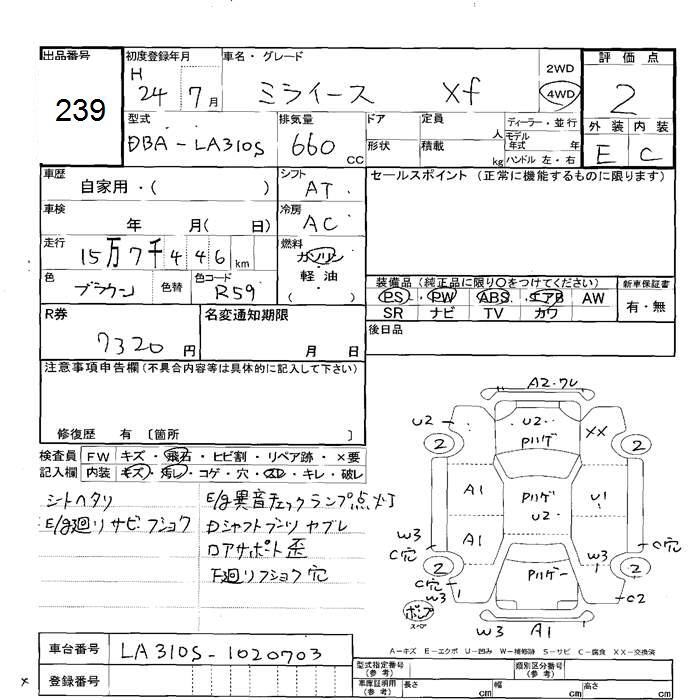 出品番号
239
初度登録年月
H
24 7月
車名・グレード
ミライース Xf
2WD
4WD
評価点
2
外装 内装
E C
型式
DBA-LA310S
排気量
660 CC
ドア
形状
定員 人
積載 kg
ディーラー・並行
モデル年式 年
ハンドル 左・右
車歴
自家用・( )
シフト
AT
セールスポイント (正常に機能するものに限ります)
車検
年 月( 日)
冷房
AC
走行
15万7千446km
燃料
ガソリン
軽油
( )
色
ブラウン
色替
色コード
R59
装備品(純正品に限り○をつけてください)
PS・PW・ABS・エアB AW
SR ナビ TV カワ
新車保証書
有・無
R券
7320円
名変通知期限
月 日
後日品
注意事項申告欄(不具合内容等は具体的に記入して下さい)
修復歴 有 〔箇所 〕
検査員記入欄
FW キズ・飛石・ヒビ割・リペア跡・×要
内装 キズ・汚レ・コゲ・穴・スレ・キレ・破レ
シートヘタリ
E/g廻リサビフショク
E/g異音チェックランプ点灯
Dシャフトブーツヤブレ
ロアサポート歪
下廻リフショク穴
A2・ワレ
U2
U2
Pハゲ
XX
2
2
A1
Pハゲ
U2
U1
A1
W3
C穴
W3
C穴
2
2
C穴
W3
Pハゲ
C2
W3 A1
A-キズ E-エクボ U-凹み W-補修跡 S-サビ C-腐食 XX-交換済
車台番号
LA310S-1020703
登録番号
型式指定番号(参考)
類別区分番号(参考)
車庫証明用(参考)
長さ cm
幅 cm
高さ cm
×